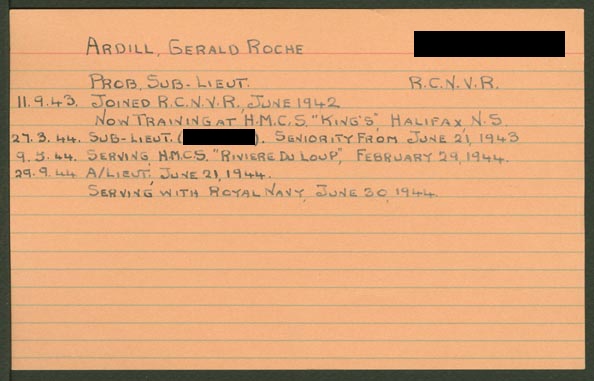 ARDILL, GERALD ROCHE
PROB. SUB-LIEUT. R.C.N.V.R.
11.9.43. JOINED R.C.N.V.R., JUNE 1942
NOW TRAINING AT H.M.C.S. "KING'S", HALIFAX, N.S.
27.3.44. SUB-LIEUT. ( ). SENIORITY FROM JUNE 21, 1943
9.5.44. SERVING, H.M.C.S. "RIVIERE DU LOUP", FEBRUARY 29, 1944.
29.9.44 A/LIEUT, JUNE 21, 1944.
SERVING WITH ROYAL NAVY, JUNE 30, 1944.